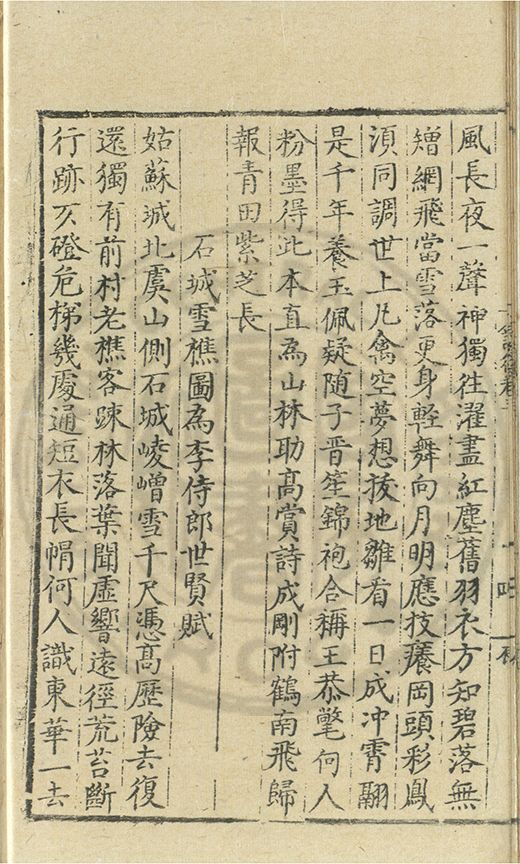 風長夜一聲神獨往濯盡紅塵舊羽衣方知碧落無
矰網飛當雪落更身輕舞向月明應技癢岡頭彩鳳
湏同調世上凡禽空夢想拔地雛看一日成冲霄翮
是千年養玉佩疑隨子晉笙錦袍合稱王恭氅何人
粉墨得此本直爲山林助高賞詩成剛附鶴南飛歸
報青田紫芝長
石城雪樵圖爲李侍郎世賢賦
姑蘇城北虞山側石城崚嶒雪千尺憑高歷險去復
還獨有前村老樵客踈林落葉聞虛響遠徑荒苔斷
行跡仄磴危梯幾處通短衣長帽何人識東華一去